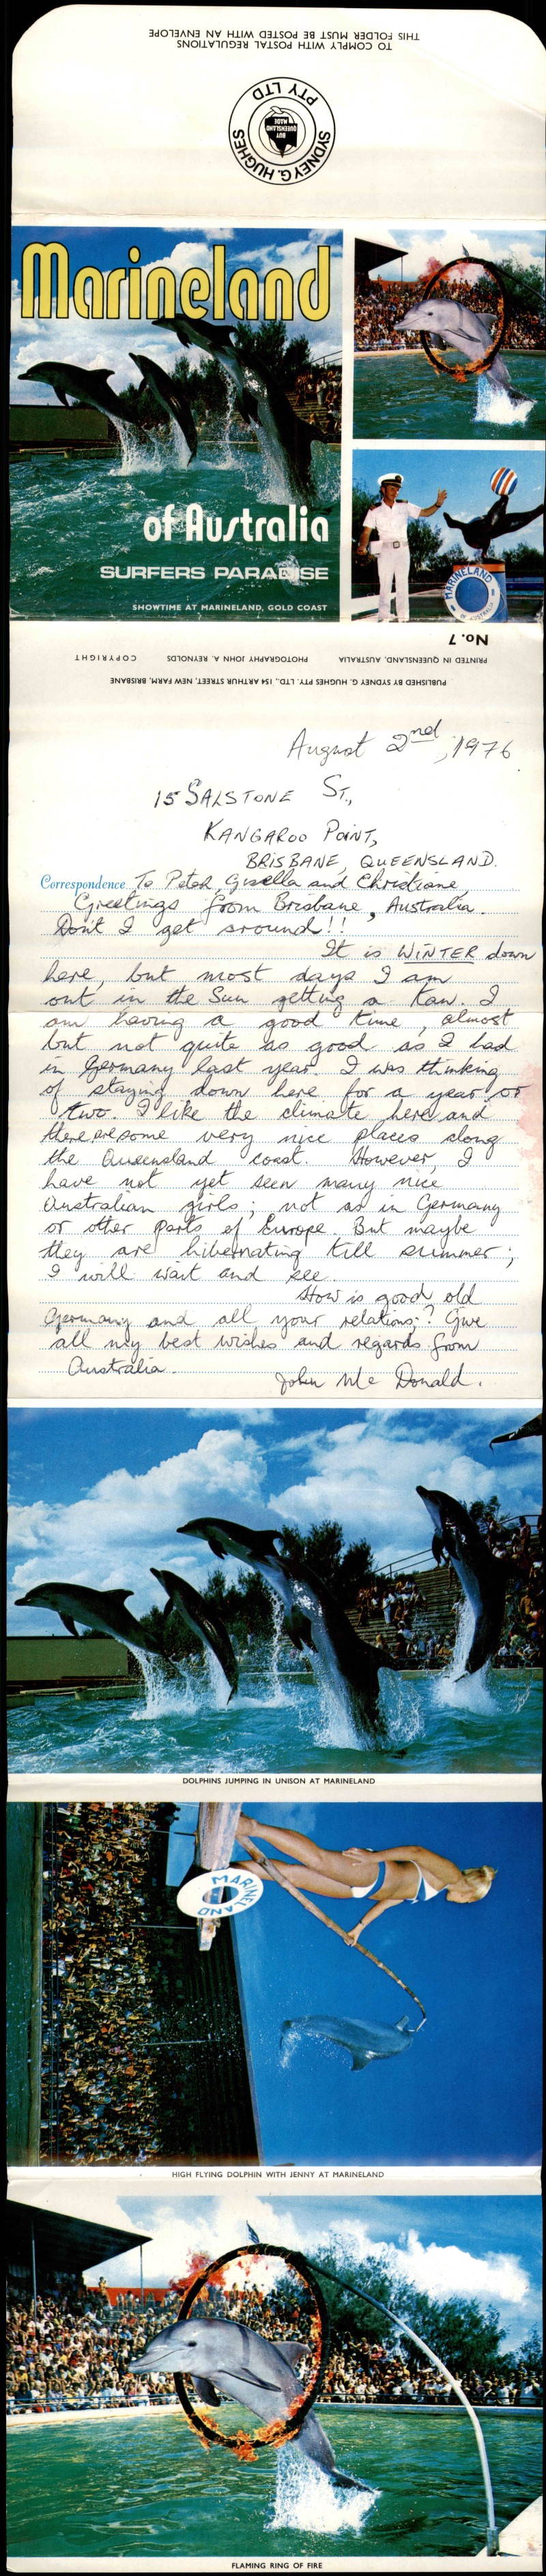 TO COMPLY WITH POSTAL REGULATIONS
THIS FOLDER MUST BE POSTED WITH AN ENVELOPE
SYDNEY G. HUGHES
PTY LTD
BUY
QUEENSLAND
MADE
Marineland
of Australia
SURFERS PARADISE
SHOWTIME AT MARINELAND, GOLD COAST
MARINELAND
OF AUSTRALIA
No. 7
PRINTED IN QUEENSLAND, AUSTRALIA PHOTOGRAPHY JOHN A. REYNOLDS COPYRIGHT
PUBLISHED BY SYDNEY G. HUGHES PTY. LTD., 154 ARTHUR STREET, NEW FARM, BRISBANE
August 2nd, 1976
15 SALSTONE ST.,
KANGAROO POINT,
BRISBANE, QUEENSLAND.
Correspondence To Peter, Gisella and Christiane,
Greetings from Brisbane, Australia.
Don't I get around!!
It is WINTER down
here, but most days I am
out in the Sun getting a tan. I
am having a good time, almost
but not quite as good as I had
in Germany last year. I was thinking
of staying down here for a year or
two. I like the climate here and
there are some very nice places along
the Queensland coast. However, I
have not yet seen many nice
Australian girls; not as in Germany
or other parts of Europe. But maybe
they are hibernating till summer;
I will wait and see.
How is good old
Germany and all your relations? Give
all my best wishes and regards from
Australia.
John Mc Donald.
DOLPHINS JUMPING IN UNISON AT MARINELAND
MARINELAND
HIGH FLYING DOLPHIN WITH JENNY AT MARINELAND
FLAMING RING OF FIRE